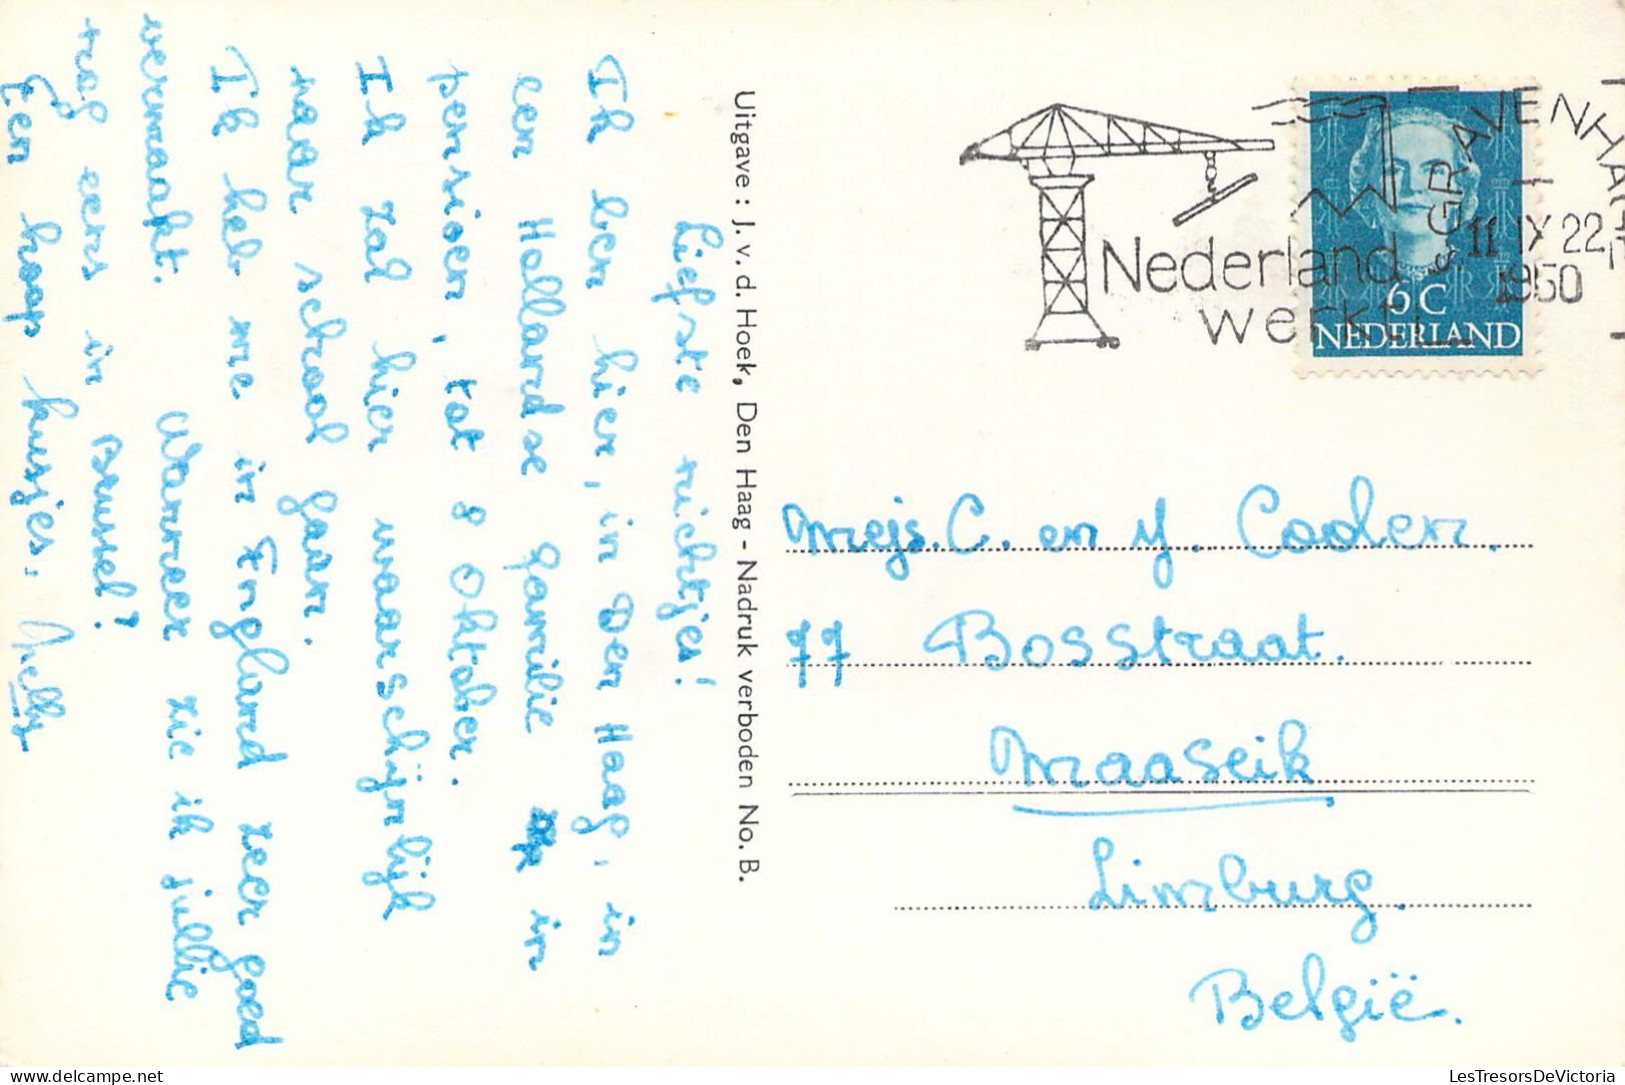 Liefste nichtjes!
Ik ben hier, in Den Haag, in
een Hollandse familie in
pensioen, tot 8 Oktober.
Ik zal hier waarschijnlijk
naar school gaan.
Ik heb me in Engeland zeer goed
vermaakt. Wanneer zie ik jullie
nog eens in Brussel?
Een hoop kusjes. Nelly
Uitgave : J. v. d. Hoek, Den Haag - Nadruk verboden No. B.
Nederland
werkt!
'sGRAVENHAGE
11 IX 22
1950
6 C
NEDERLAND
Mejs. C. en Y. Coolen.
77 Bosstraat.
Maaseik
Limburg.
België.
LesTresorsDeVictoria